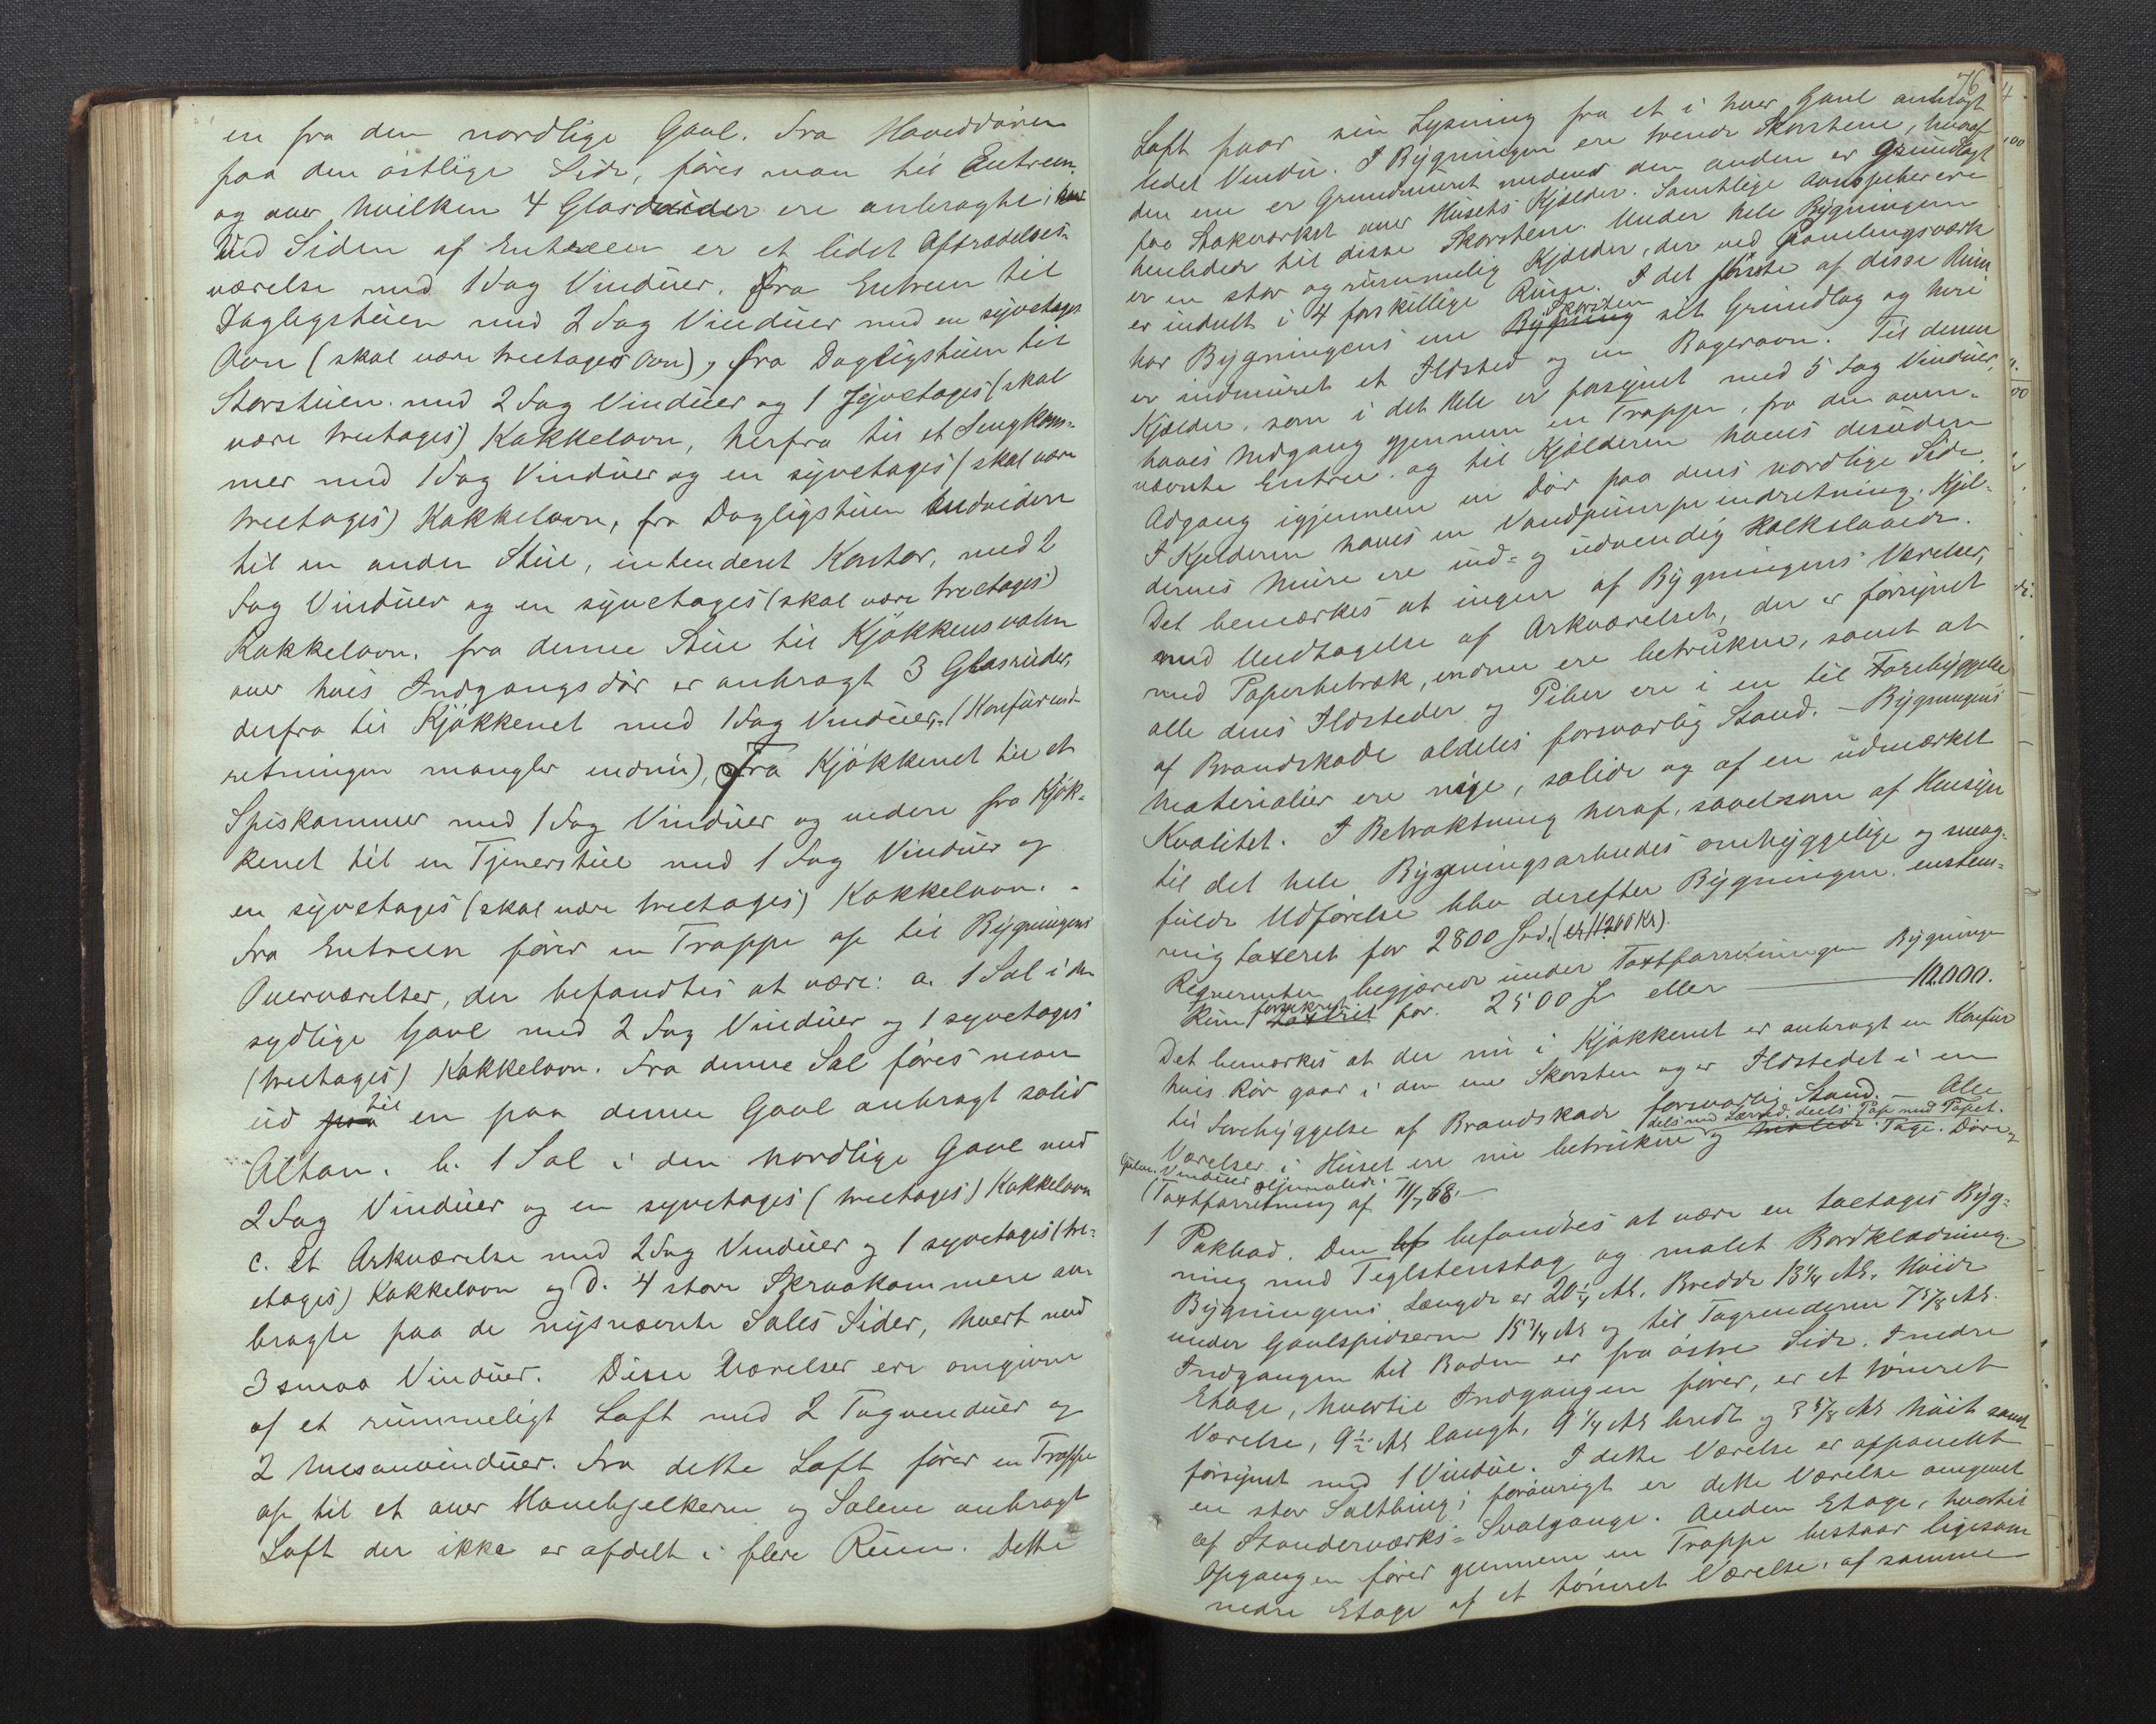 en fra den nordlige Gavl. Fra Hoveddören
paa den östlige Side, föres man til Entreen
og over hvilken 4 Glasruder ere anbragte;
Ved Siden af Entreen er et lidet Aftrædelses-
værelse med 1 Fag Vinduer. Fra Entreen til
Dagligstuen med 2 Fag Vinduer med en syvetages
Ovn (skal være treetages Ovn), fra Dagligstuen til
Storstuen med 2 Fag Vinduer og 1 syvetages (skal
være treetages) Kakkelovn, herfra til et Sengkam-
mer med 1 Fag Vinduer og en syvetages (skal være
treetages) Kakkelovn, fra Dagligstuen endvidere
til en anden Stue, intenderet Kontor, med 2
Fag Vinduer og en syvetages (skal være treetages)
Kakkelovn. fra denne Stue til Kjökkensvalen
over hvis Indgangsdör er anbragt 3 Glasruder,
derfra til Kjökkenet med 1 Fag Vinduer, (Komfurind-
retningen mangler endnu), Fra Kjökkenet til et
Spiskammer med 1 Fag Vinduer og videre fra Kjök-
kenet til en Tjenerstue med 1 Fag Vinduer og
en syvetages (skal være treetages) Kakkelovn. -
Fra Entreen förer en Trappe op til Bygningens
Oververærelser, der befandtes at være: a. 1 Sal i den
sydlige Gavl med 2 Fag Vinduer og 1 syvetages
(treetages) Kakkelovn. Fra denne Sal föres man
ud paa til en paa denne Gavl anbragt solid
Altan. b. 1 Sal i den nordlige Gavl med
2 Fag Vinduer og en syvetages (treetages) Kakkelovn
c. et Arkværelse med 2 Fag Vinduer og 1 syvetages (tre-
etages) Kakkelovn og d. 4 store Skraakammere an-
bragte paa de nysnævnte Sales Sider, hvert med
3 smaa Vinduer. Disse Værelser ere omgivne
af et rummeligt Loft med 2 Tagvinduer og
2 Mesanvinduer. Fra dette Loft förer en Trappe
op til et over Hanebjelkerne og Salene anbragt
Loft der ikke er afdelt i flere Rum. Dette
76
Loft faar sin Lysning fra et i hver Gavl anbragt
lidet Vindu. I Bygningen ere tvende Skorstene, hvoraf
den ene er Grundmuret medens den anden er Grundlagt
paa Stokværket over Husets Kjælder. Samtlige Ovnspiber ere
henledede til disse Skorstene. Under hele Bygningen
er en stor og rummelig Kjælder, der ved Panelingsværk
er inddelt i 4 forskellige Rum. I det förste af disse Rum
har Bygningens ene Bygning Skorsten sit Grundlag og heri
er indmuret et Ildsted og en Bagerovn. Til denne
Kjælder, som i det Hele er forsynet med 5 Fag Vinduer,
haves Nedgang gjennem en Trappe, fra den oven-
nævnte Entree. og til Kjælderen haves desuden
Adgang igjennem en Dör paa dens nordlige Side.
I Kjelderen haves en Vandpumpeindretning. Kjæl-
derens Mure ere ind- og udvendig kalkslaaede.
Det bemærkes at ingen af Bygningens Værelser,
med Undtagelse af Arkværelset, der er forsynet
med Papirbetræk, endnu ere betrukne, samt at
alle dens Ildsteder og Piber ere i en til Forebyggelse
af Brandskade aldeles forsvarlig Stand. - Bygningens
Materialier ere nye, solide og af en udmærket
Kvalitet. I Betraktning heraf, saavelsom af Hensyn
til det hele Bygningsarbeides omhyggelige og smag-
fulde Udförelse blev derefter Bygningen enstem-
mig taxeret for 2800 Spd. (er 11200 Kr).
Reqverenten begjærede under Taxtforretningen Bygningen
kun taxeret forsikret for 2500 Sp eller 10.000.
Det bemærkes at der nu i Kjökkenet er anbragt en Komfur
hvis Rör gaar i den ene Skorsten og er Ildstedet i en
til Forebyggelse af Brandskade forsvarlig Stand. - Alle
Værelser i Huset ere nu betrukne dels med Lærred, deels Pap med Tapet. og malede Tage. Döre,
Gulve. Vinduer oljemalede. -
(Taxtforretning af 11/7 68. -
1 Pakbod. Den bf befandtes at være en toetages Byg-
ning med Teglstenstag og malet Bordklædning.
Bygningens Længde er 20 1/4 Al. Bredde 13 1/4 Al. Höide
under Gavlspidserne 15 3/4 Al og til Tagrenderne 7 5/8 Al.
Indgangen til Boden er fra östre Side. Nedre
Etage, hvortil Indgangen förer, er et tömret
Værelse, 9 1/2 Al langt, 9 1/4 Al bredt og 3 5/8 Al höit samt
forsynet med 1 Vindue. I dette Værelse er afpanelet
en stor Saltbing; forövrigt er dette Værelse omgivet
af Standerværks-Svalgange. Anden Etage, hvortil
Opgangen förer gjennem en Trappe bestaar ligesom
nedre Etage af et tömret Værelse af samme